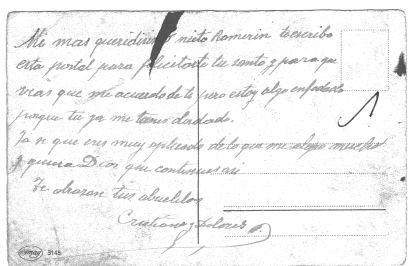 Mi mas queridisimo nieto Romerin te escribo
esta postal para felicitarte tu santo y para que
veas que me acuerdo de ti pero estoy algo enfadado
porque tu ya me tienes olvidado.
Ya se que eres muy aplicado de lo que me alegro mucho
y quiera Dios que continues asi
Te abrazan tus abuelitos
Cristiano y Dolores
3145